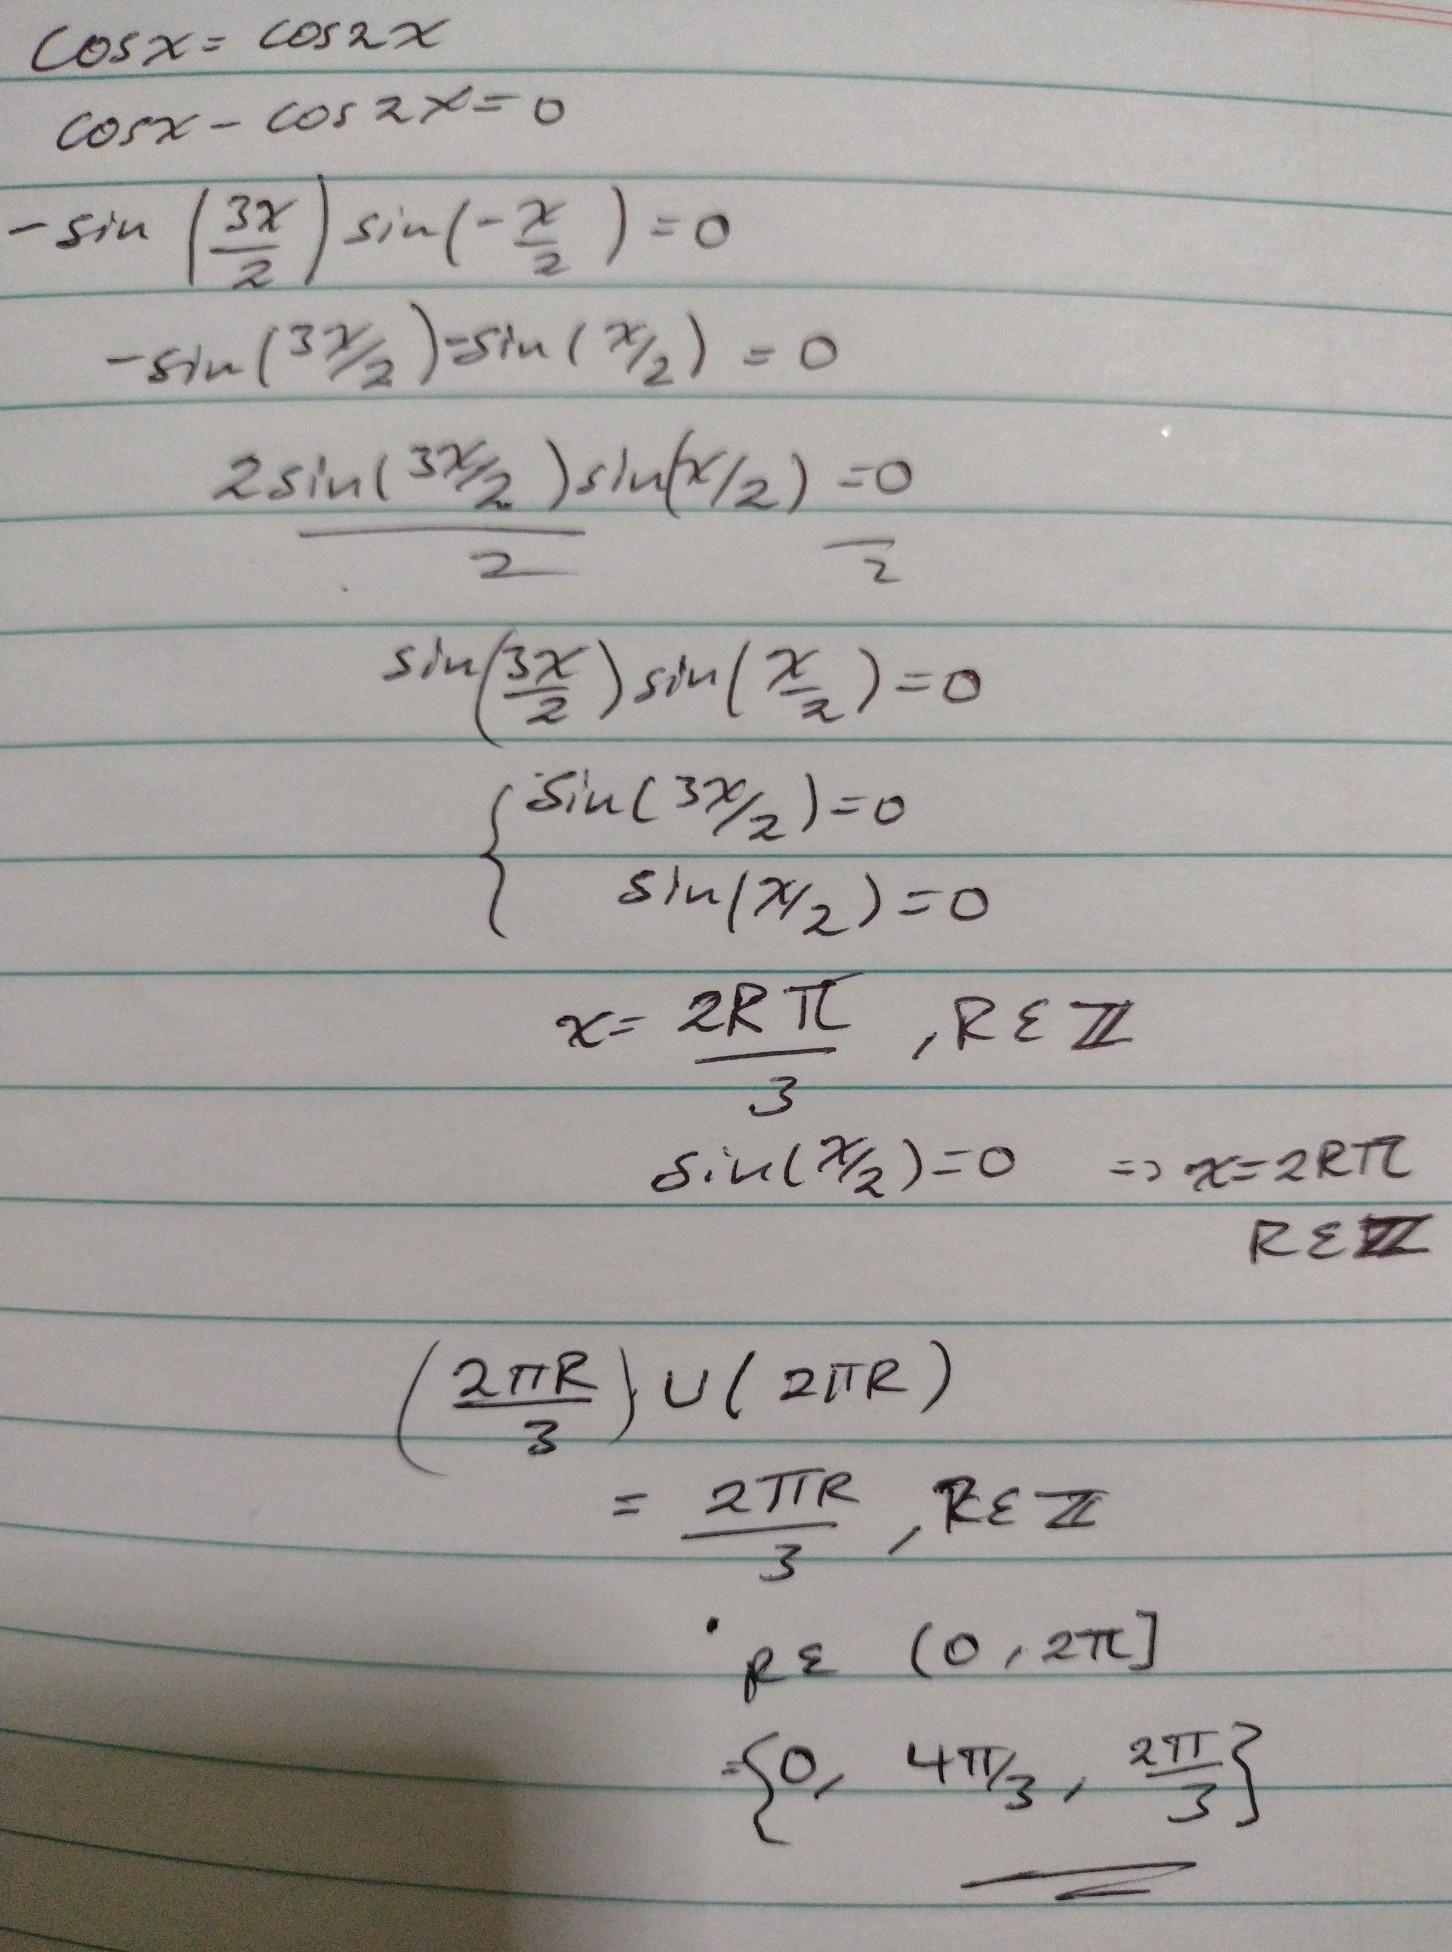 cosx = cos2x
cosx - cos2x = 0
-sin (3x/2) sin(-x/2) = 0
-sin(3x/2)-sin(x/2) = 0
2sin(3x/2)sin(x/2) = 0
2 2
sin(3x/2) sin(x/2) = 0
{ sin(3x/2) = 0
sin(x/2) = 0
x = 2Rπ/3 , R ε ℤ
sin(x/2) = 0 => x = 2Rπ
R ε ℤ
(2πR/3) ∪ (2πR)
= 2πR/3 , R ε ℤ
• R ε (0, 2π]
= {0, 4π/3, 2π/3}